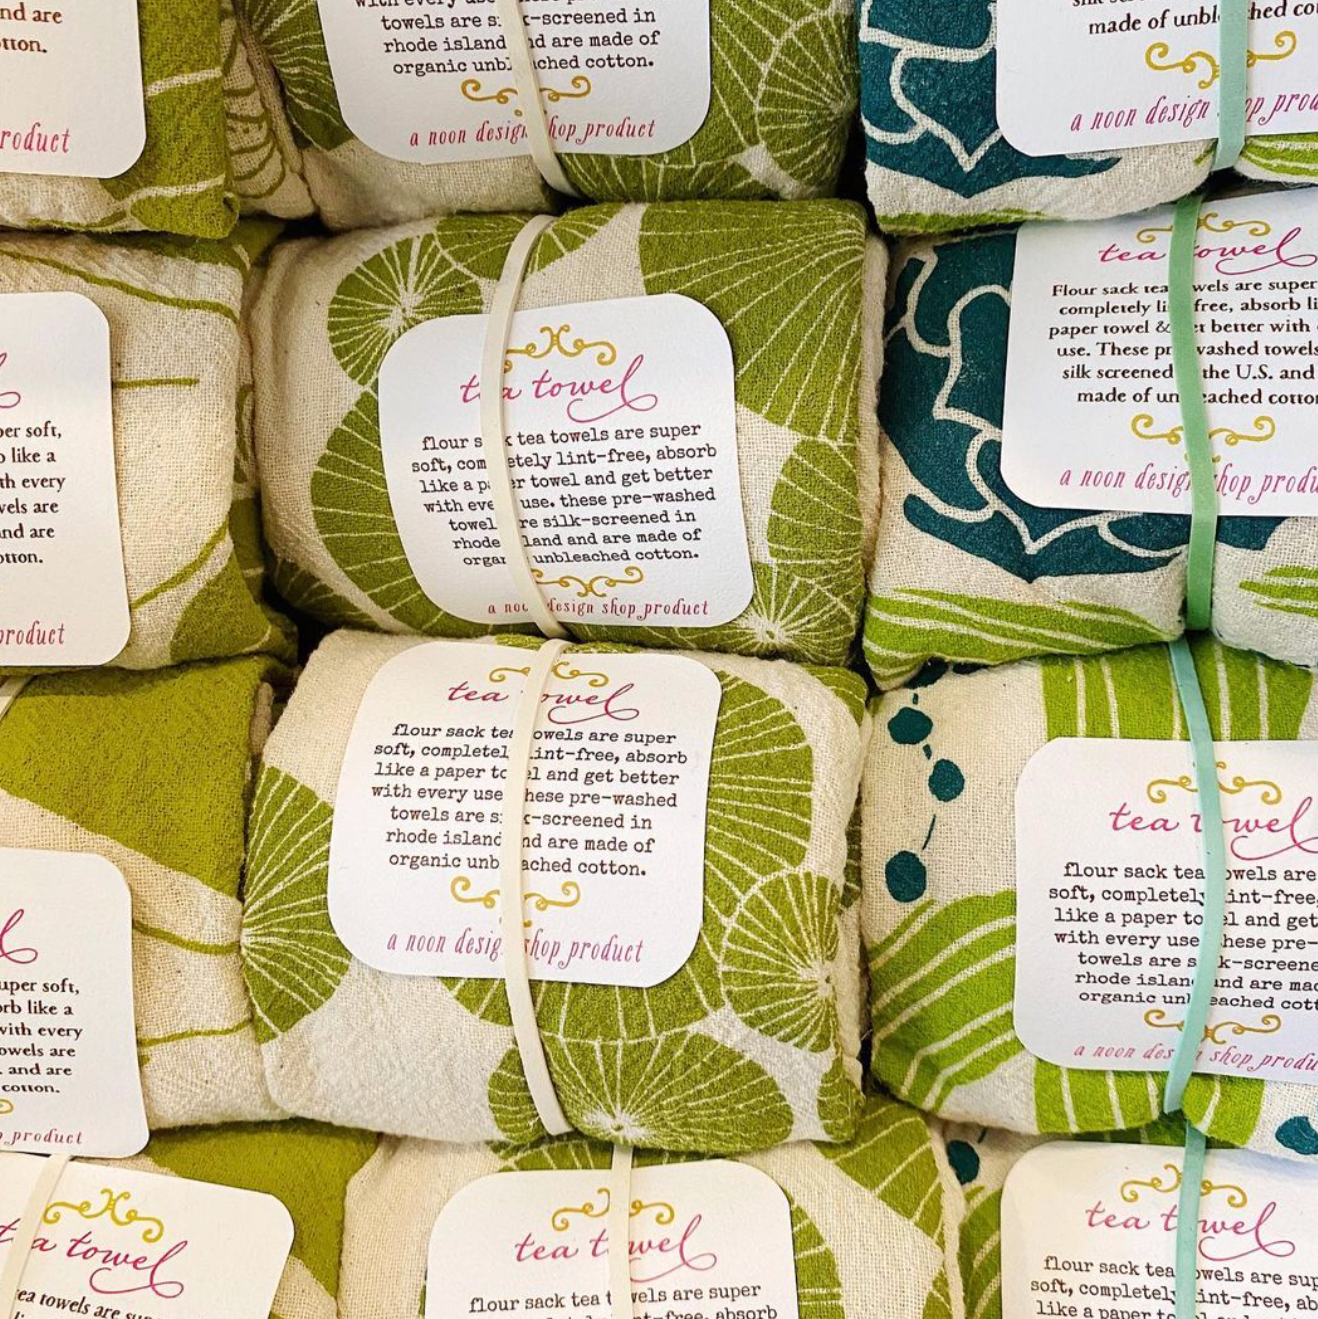 nd are
tton.
roduct
towels are s k-screened in
rhode island nd are made of
organic unbl ached cotton.
a noon design hop product
made of unbl hed co
a noon design op prod
er soft,
o like a
th every
vels are
nd are
otton.
product
tea towel
flour s k tea towels are super
soft, com etely lint-free, absorb
like a pa er towel and get better
with eve use. these pre-washed
towel re silk-screened in
rhode land and are made of
organ unbleached cotton.
a noo design shop product
tea towel
Flour sack tea wels are super
completely li free, absorb li
paper towel & et better with
use. These pr washed towels
silk screened the U.S. and
made of un eached cotton
a noon design shop produ
tea owel
flour sack tea owels are super
soft, completel int-free, absorb
like a paper to el and get better
with every use hese pre-washed
towels are s k-screened in
rhode island nd are made of
organic unb ached cotton.
a noon desig shop product
tea t wel
flour sack tea owels are
soft, completely int-free,
like a paper to el and get
with every use hese pre-
towels are s k-screene
rhode islan and are mad
organic unbl eached cott
a noon des n shop produ
uper soft,
rb like a
with every
owels are
. and are
cotton.
product
tea towel
tea towels are sup
tea t wel
flour sack tea t wels are super
nt-free, absorb
tea t wel
flour sack tea owels are sup
soft, complete int-free, ab
like a paper to